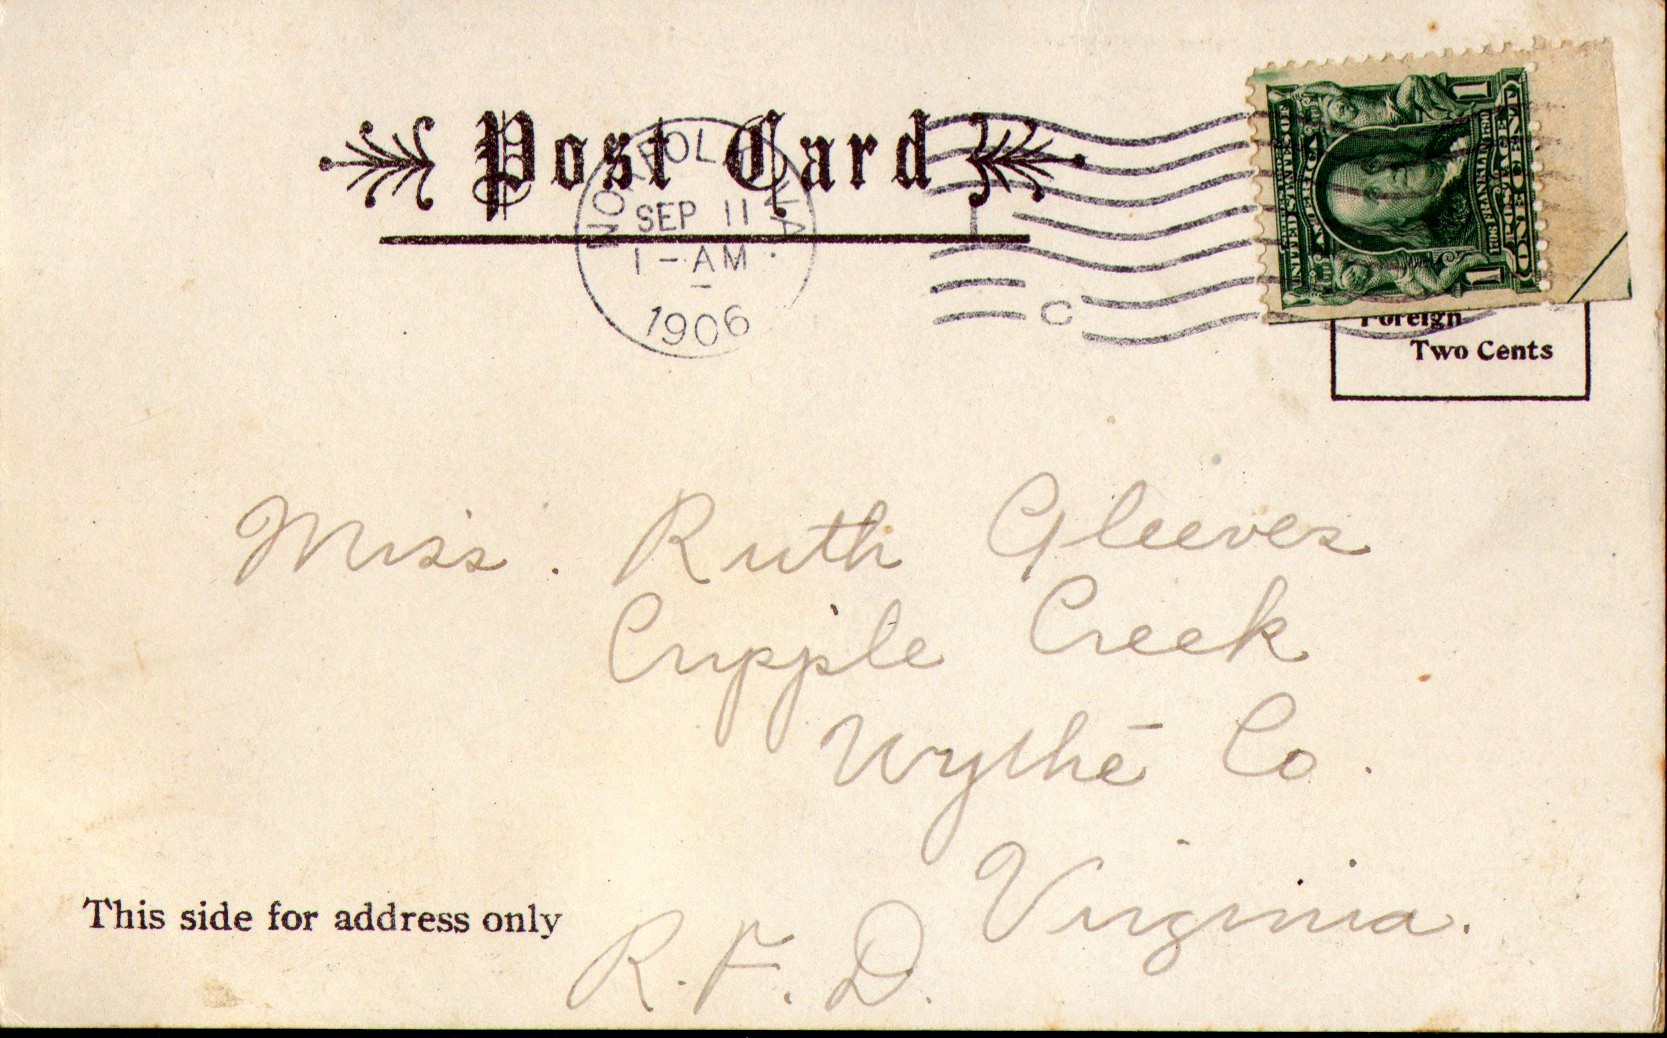 Post Card
NORFOLK, VA.
SEP 11
1-AM
1906
C
UNITED STATES OF AMERICA
1 1
ONE CENT
Foreign
Two Cents
Miss. Ruth Gleeves
Cripple Creek
Wythe Co.
Virginia.
This side for address only
R.F.D.